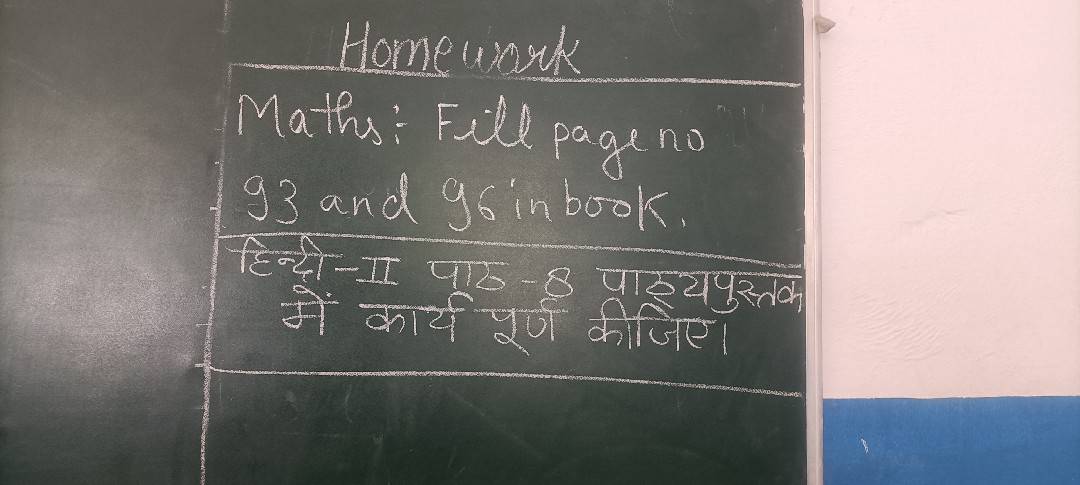 Homework
Maths:- Fill page no
93 and 96 in book.
हिन्दी-II पाठ-8 पाठ्यपुस्तक
में कार्य पूर्ण कीजिए।